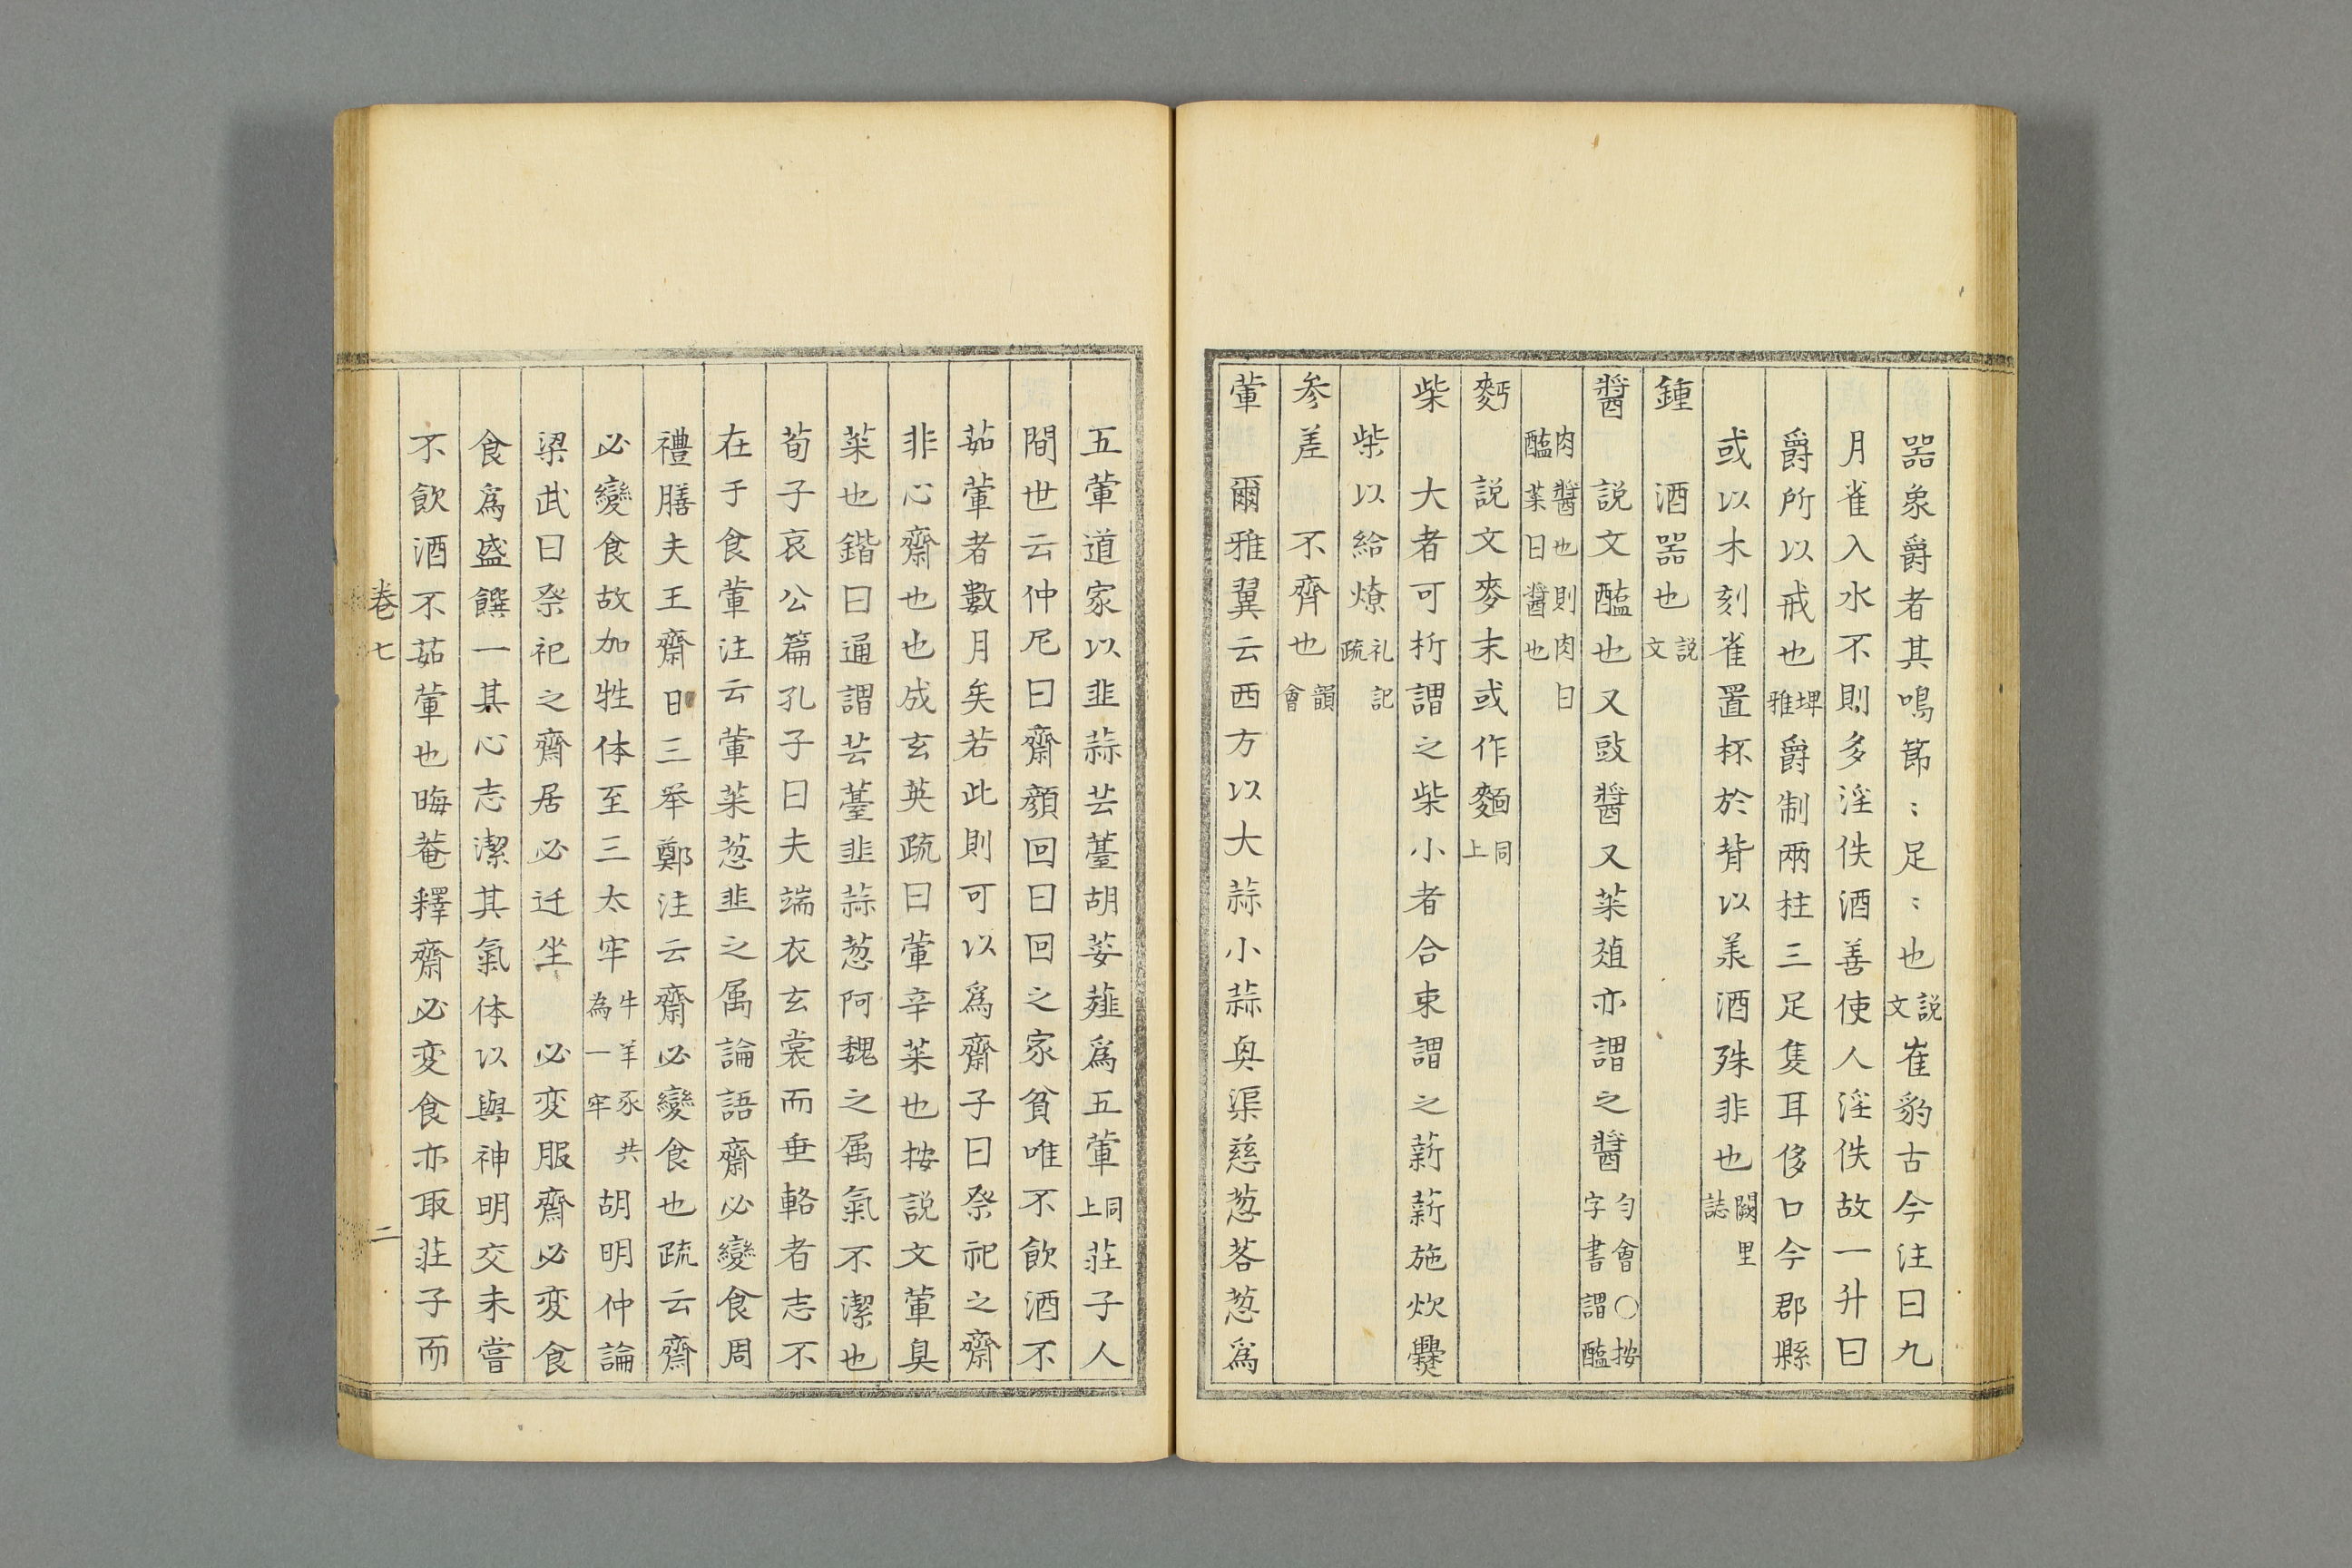 器象爵者其鳴節〻足〻也説文崔豹古今注曰九
月雀入水不則多淫佚酒善使人淫佚故一升曰
爵所以戒也埤雅爵制兩柱三足隻耳侈口今郡縣
或以木刻雀置杯於背以羕酒殊非也闕里誌
鍾　酒器也説文
醬　説文醢也又豉醬又菜葅亦謂之醬匀會○按字書謂醢
肉醬也則肉曰醢菜曰醬也
麪　説文麥末或作麵同上
柴　大者可析謂之柴小者合束謂之薪薪施炊爨
柴以給燎礼記疏
参差　不齊也韻會
葷　爾雅翼云西方以大蒜小蒜與渠慈葱茖葱爲
五葷道家以韭蒜芸薹胡荽薤爲五葷同上莊子人
間世云仲尼曰齋顔回曰回之家貧唯不飲酒不
茹葷者數月矣若此則可以爲齋子曰祭祀之齋
非心齋也也成玄英疏曰葷辛菜也按説文葷臭
菜也鍇曰通謂芸薹韭蒜葱阿魏之属氣不潔也
荀子哀公篇孔子曰夫端衣玄裳而乗輅者志不
在于食葷注云葷菜葱韭之属論語齋必變食周
禮膳夫王齋日三举鄭注云齋必變食也疏云齋
必變食故加牲体至三太牢牛羊豕共為一牢胡明仲論
梁武曰祭祀之齋居必迁坐　必変服齋必変食
食爲盛饌一其心志潔其氣体以與神明交未嘗
不飲酒不茹葷也晦菴釋齋必変食亦取莊子而
卷七　二